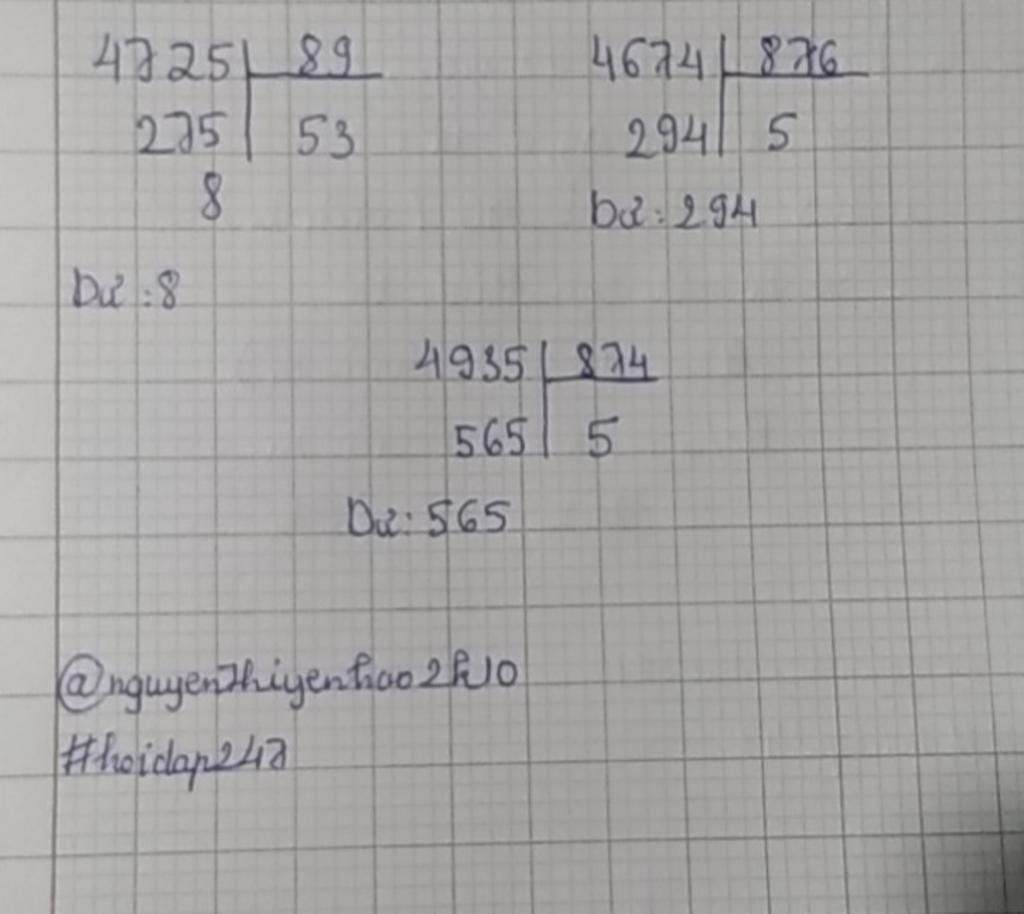 4725 89
275 53
8
Dư : 8
4674 876
294 5
Dư : 294
4935 874
565 5
Dư : 565
@nguyenthiyenhao2k10
#hoidap247